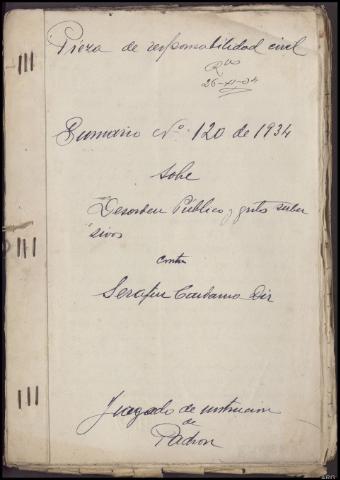 Pieza de responsabilidad civil
26-XI-34
Sumario Nº 120 de 1934
sobre
Desorden Público y gritos subver
sivos
contra
Serafin
Juzgado de instrucion
de
Padron